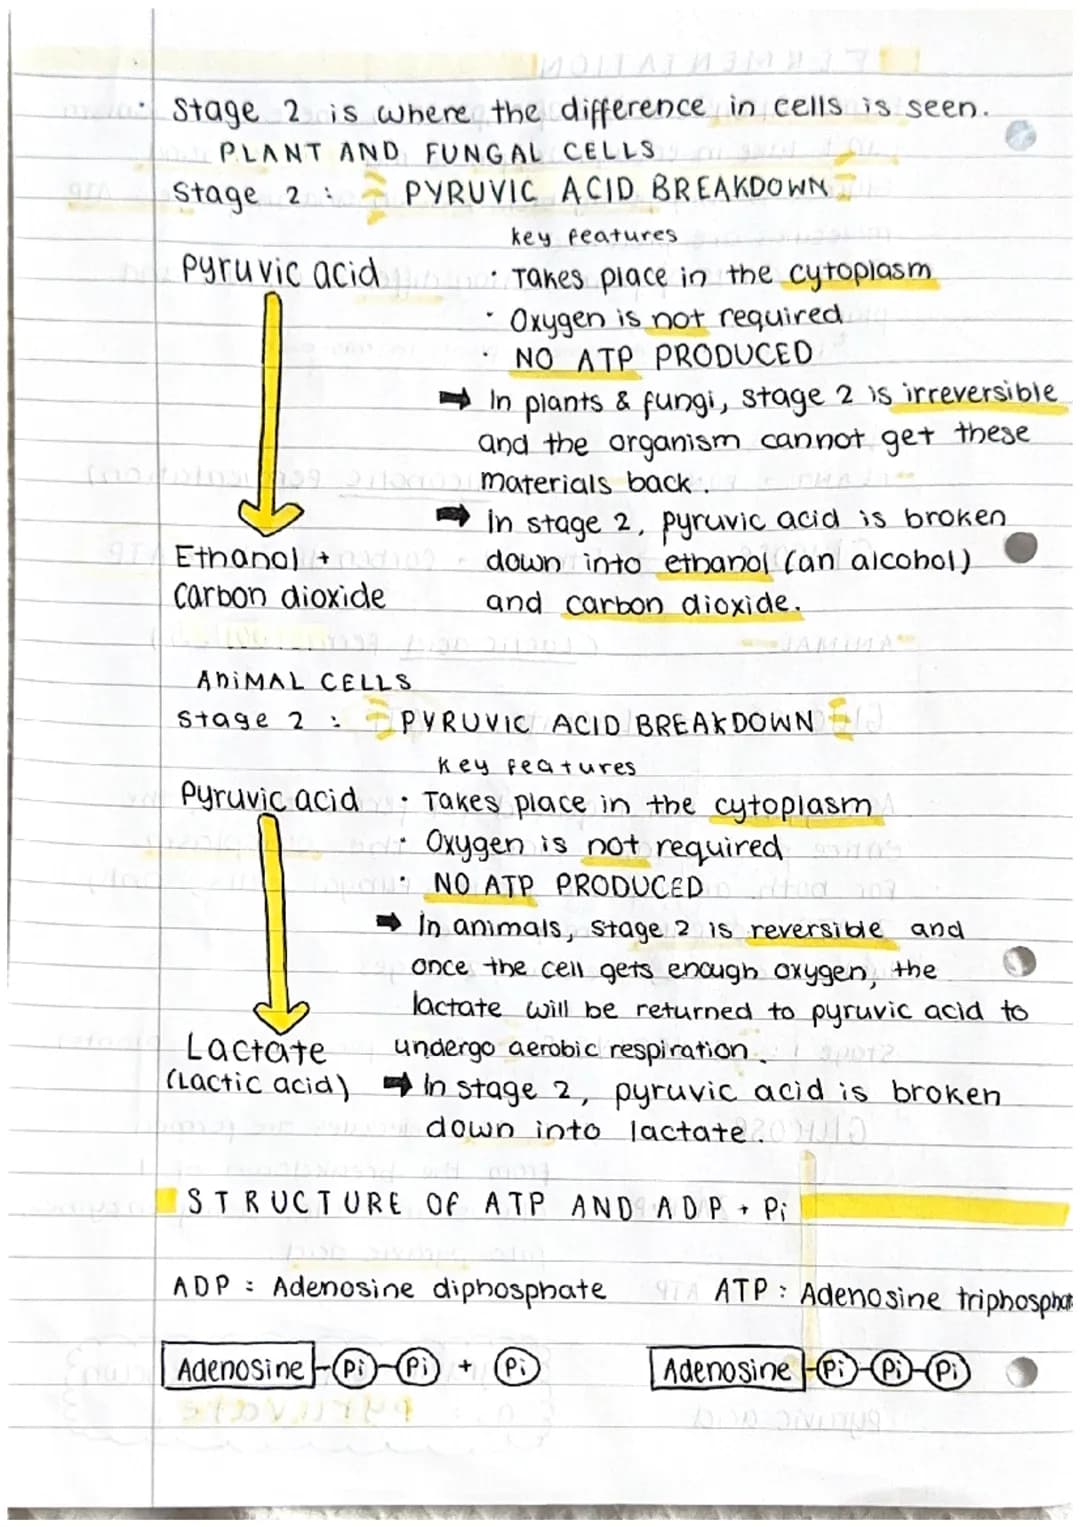 · Stage 2 is where the difference in cells is seen.
PLANT AND FUNGAL CELLS
Stage 2 : PYRUVIC ACID BREAKDOWN
key features
Pyruvic acid
· Takes place in the cytoplasm
· Oxygen is not required
· NO ATP PRODUCED
➡ In plants & fungi, stage 2 is irreversible
and the organism cannot get these
materials back.
➡ in stage 2, pyruvic acid is broken
down into ethanol (an alcohol)
and carbon dioxide.
Ethanol +
Carbon dioxide
ANIMAL CELLS
Stage 2 : PYRUVIC ACID BREAKDOWN
Key features
Pyruvic acid
· Takes place in the cytoplasm
· Oxygen is not required
· NO ATP PRODUCED
➡ In animals, stage 2 is reversible and
once the cell gets enough oxygen, the
lactate will be returned to pyruvic acid to
undergo aerobic respiration.
➡ In stage 2, pyruvic acid is broken
down into lactate.
Lactate
(Lactic acid)
STRUCTURE OF ATP AND ADP + Pi
ADP : Adenosine diphosphate
ATP : Adenosine triphosphat
Adenosine Pi Pi + Pi
Adenosine Pi Pi Pi